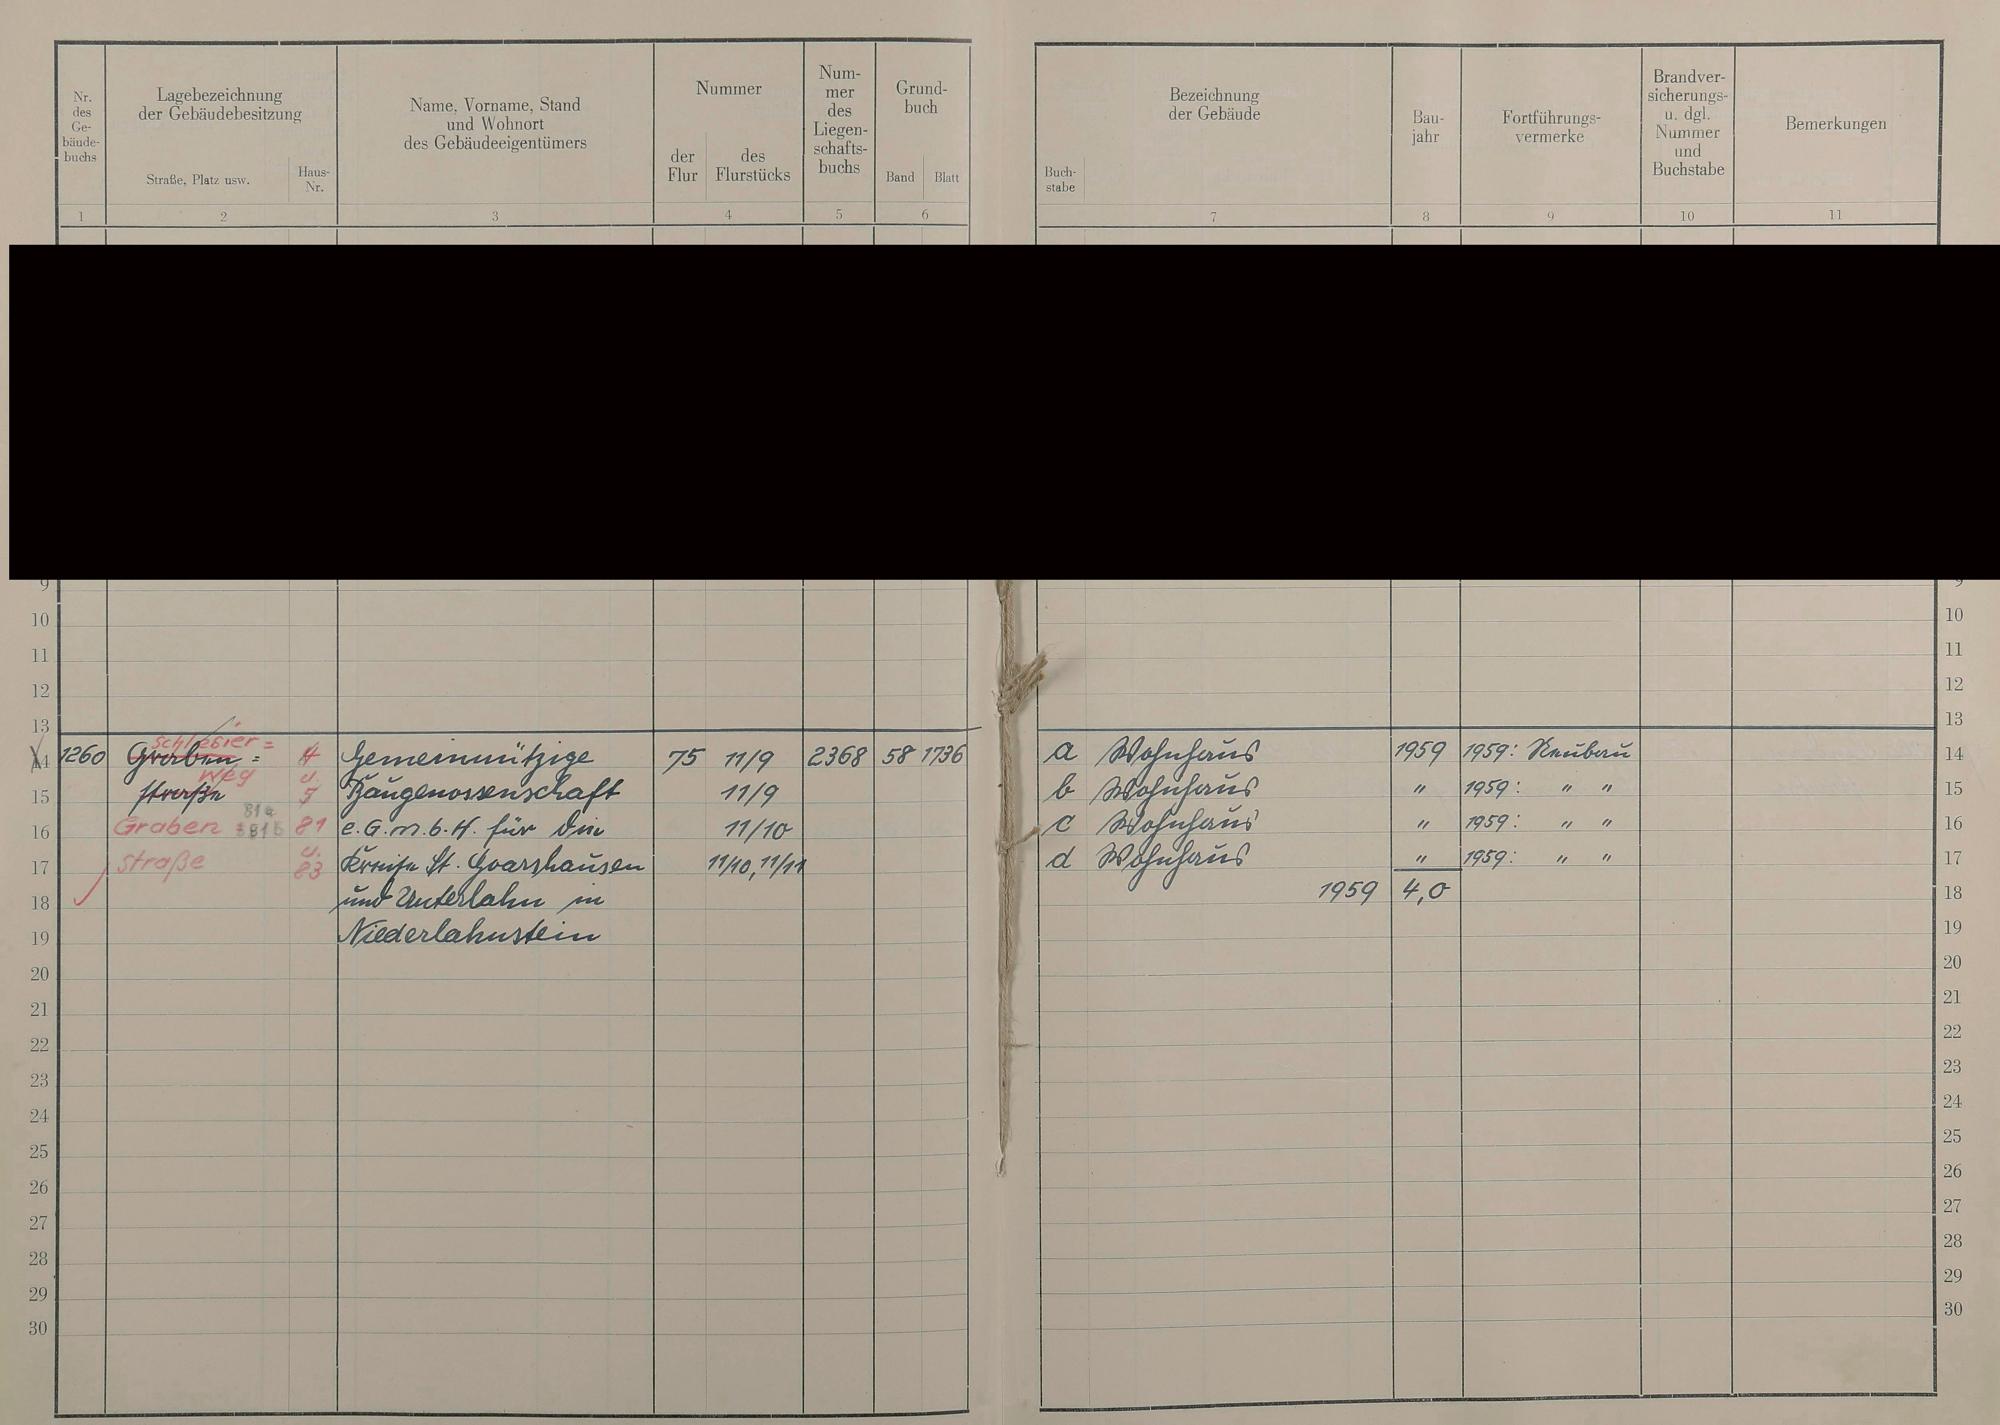 Nr. des Ge- bäude- buchs
Lagebezeichnung
der Gebäudebesitzung
Straße, Platz usw.
Haus- Nr.
Name, Vorname, Stand
und Wohnort
des Gebäudeeigentümers
Nummer
der Flur
des Flurstücks
Num- mer des Liegen- schafts- buchs
Grund- buch
Band Blatt
1 2 3 4 5 6
Buch- stabe
Bezeichnung
der Gebäude
Bau- jahr
Fortführungs- vermerke
Brandver- sicherungs- u. dgl. Nummer und Buchstabe
Bemerkungen
7 8 9 10 11
9 9
10 10
11 11
12 12
13 13
schlesier=
14 1260 Graben= 4 Gemeinnützige 75 11/9 2368 58 1736 a Wohnhaus 1959 1959: Neubau 14
weg u.
15 straße 5 Baugenossenschaft 11/9 b Wohnhaus " 1959: " " 15
81a
16 Graben 81b 81 e.G.m.b.H. für die 11/10 c Wohnhaus " 1959: " " 16
u.
17 straße 83 Kreise St. Goarshausen 11/10, 11/11 d Wohnhaus " 1959: " " 17
18 und Unterlahn in 1959 4,0 18
19 Niederlahnstein 19
20 20
21 21
22 22
23 23
24 24
25 25
26 26
27 27
28 28
29 29
30 30